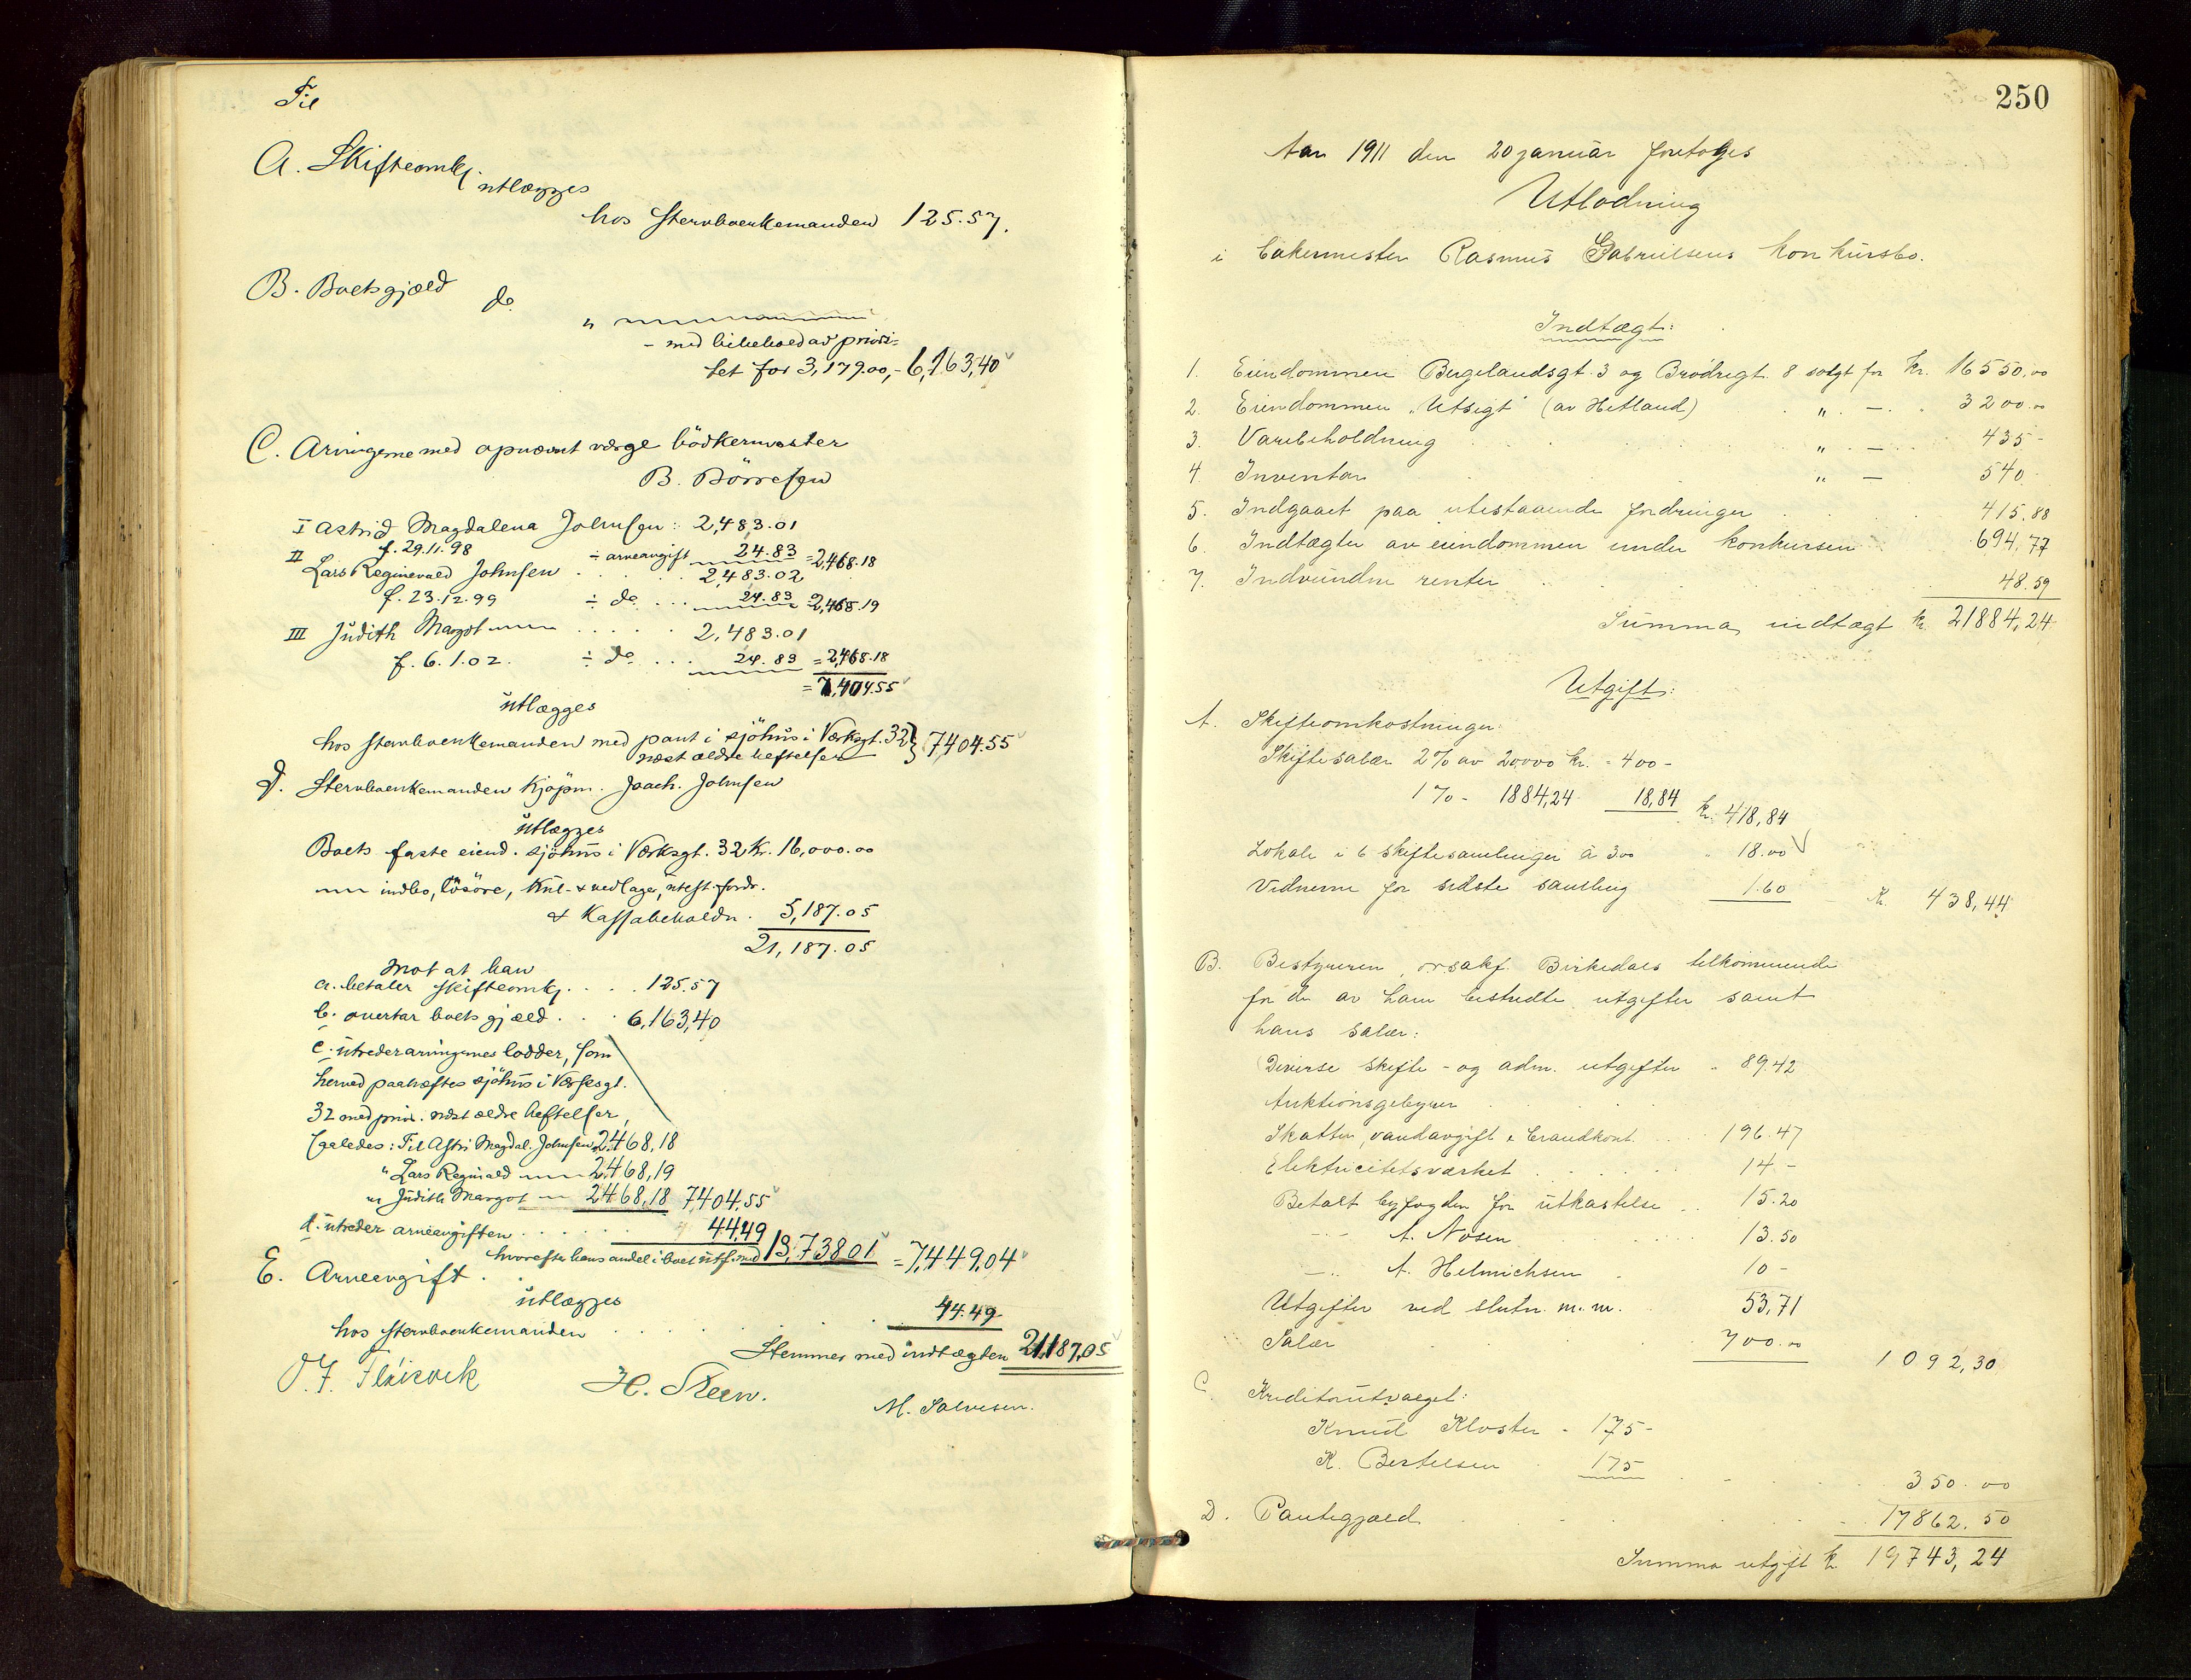 Til
A. Skifteomk.
utlægges
hos Stervboenkemanden 125.57.
B. Boets gjæld do.
" 
- med bibehold av priori-
tet for 3,179.00, - 6,163,40
C. Arvingerne med opnævnt værge bödkermester
B. Börresen
I Astrid Magdalena Johnsen: 2,483.01
f. 29.11.98 ÷ arveavgift 24.83 = 2,468.18
II Lars Reginevald Johnsen . . . 2,483.02
f. 23.12.99 ÷ do . . . 24.83 = 2,468.19
III Judith Margot — . . . . . 2,483.01
f. 6.1.02. ÷ do . . . 24.83 = 2,468.18
= 7,404.55
utlægges
hos stervboenkemanden med pant i sjöhus i Værksgt. 32 } 7404.55
næst ældre heftelser
D. Stervboenkemanden Kjöpm. Joach. Johnsen
utlægges
Boets faste eiend. sjöhus i Værksgt. 32 Kr. 16,000.00
— indbo, lösöre, Kul- & vedlager, utest. fordr.
& Kassabeholdn. 5,187.05
21,187.05
Mot at han
a. betaler skifteomk. . . . 125.57
b. overtar boets gjæld . . . 6,163,40
c. utreder arvingernes lodder, som
herved paahæftes sjöhus i Værksgt.
32 med prior. næst ældre heftelser,
saaledes: Til Astri Magdal. Johnsen 2468,18
" Lars Reginald — 2468,19
" Judith Margot — 2468,18 7404,55
d. utreder arveavgiften . . . . . 44,49
hvorefter hans andel i boet utf. med 13,738 01 = 7,449,04
E. Arveavgift . .
utlægges
hos stervboenkemanden . . . . . 44.49
Stemmer med indtægten 21,187,05
O. J. Flöisvik H. Steen. M. Salvesen.
250
Aar 1911 den 20 januar foretoges
Utlodning
i bakermester Rasmus Gabrielsens konkursbo.
Indtægt:
1. Eiendommen Bergelandsgt. 3 og Brödregt. 8 solgt for kr. 16550,00
2. Eiendommen "Utsigt" (av Hetland) . " — . 3200.00
3. Varebeholdning . . . " . — . . 435 -
4. Inventar . . " — 540.
5. Indgaaet paa utestaaende fordringer . . . 415.88
6. Indtægter av eiendommen under konkursen . . 694,77
7. Indvundne renter . . . 48.59
Summa indtægt kr. 21884,24
Utgift:
A. Skifteomkostninger:
Skiftesalær 2% av 20000 kr. = 400 -
1% - 1884,24 18,84 kr. 418,84
Lokale i 6 skiftesamlinger à 3 00 " 18.00
Vidnerne for sidste samling 1.60 Kr. 438,44
B. Bestyreren, o.r.sakf. Birkedals tilkommende
for de av ham bestridte utgifter samt
hans salær:
Diverse skifte- og adm. utgifter - 89.42
Auktionsgebyrer . . .
Skatter, vandavgift & brandkont. . . . 196.47
Elektricitetsværket . . . . 14. -
Betalt byfogden for utkastelse . . 15.20
— A. Nosen . . . 13.50
— " A. Helmichsen . 10 -
Utgifter ved slutn. m. m. 53,71
Salær . . 700.00 1092,30
C. Kreditorutvalget:
Knud Kloster - 175 -
K. Bertelsen 175 . . . 350.00
D. Pantegjæld . . . . . 17862.50
Summa utgift kr 19743,24